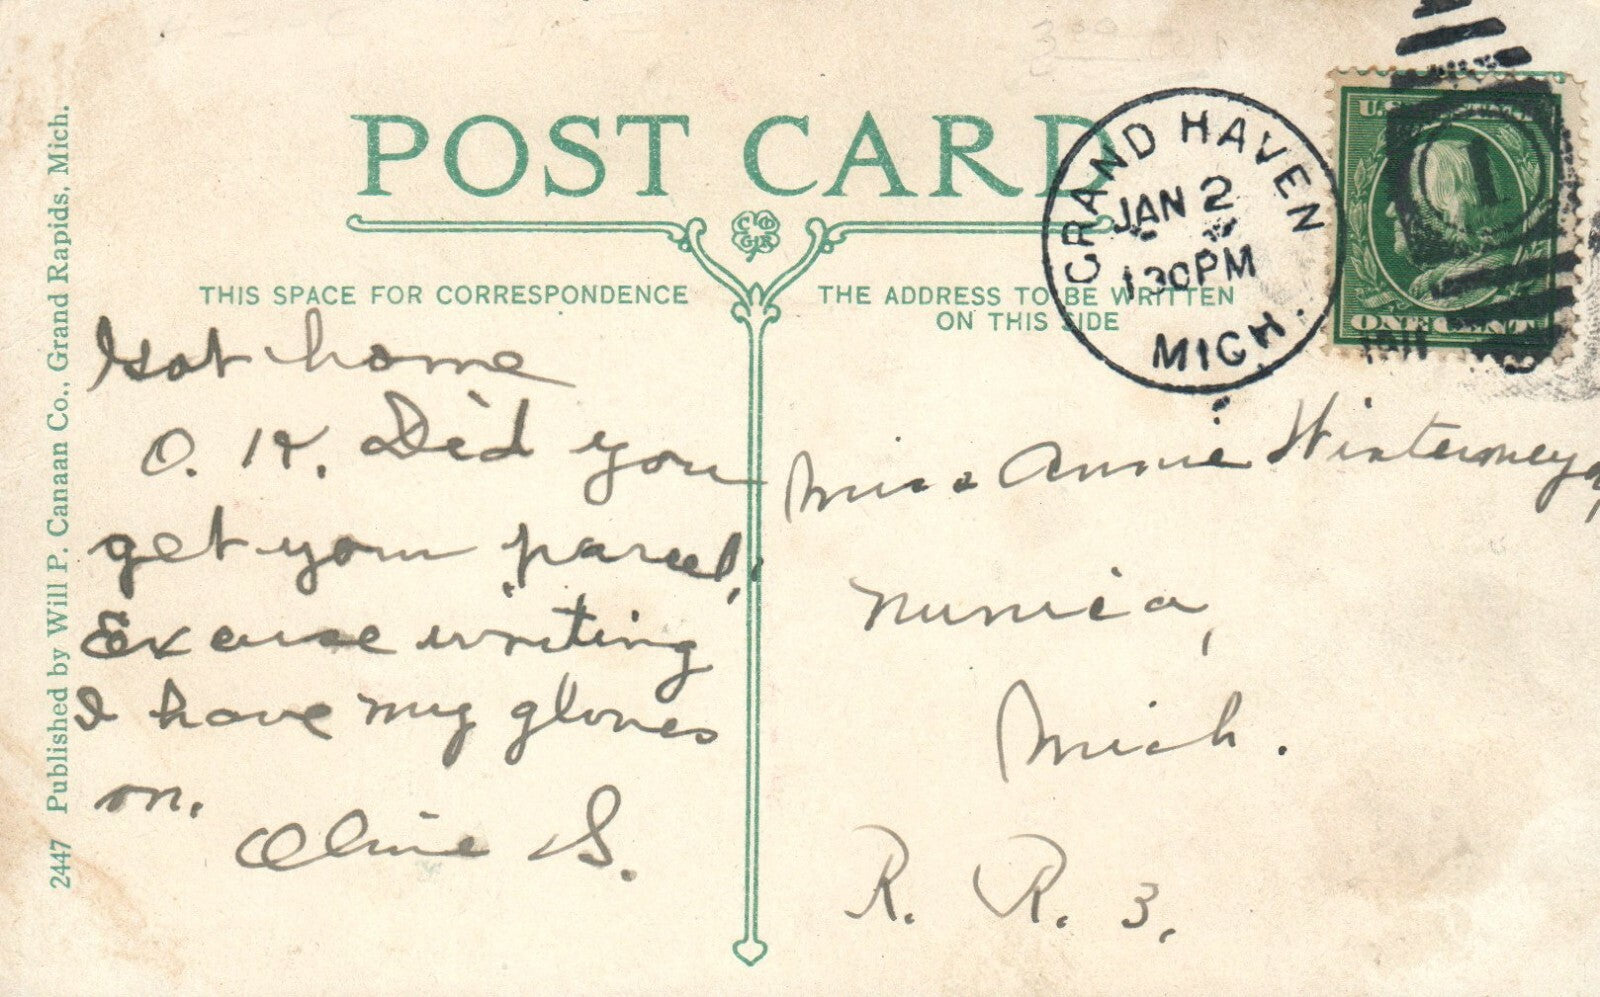 POST CARD
THIS SPACE FOR CORRESPONDENCE
THE ADDRESS TO BE WRITTEN
ON THIS SIDE
GRAND HAVEN
JAN 2
1 30 PM
MICH.
1911
U.S.
1
ONE CENT
Got home
O. K. Did you
get your parcel.
Excuse writing
I have my gloves
on.
Olive S.
Miss Annie
Nunica,
Mich.
R. R. 3.
2447 Published by Will P. Canaan Co., Grand Rapids, Mich.